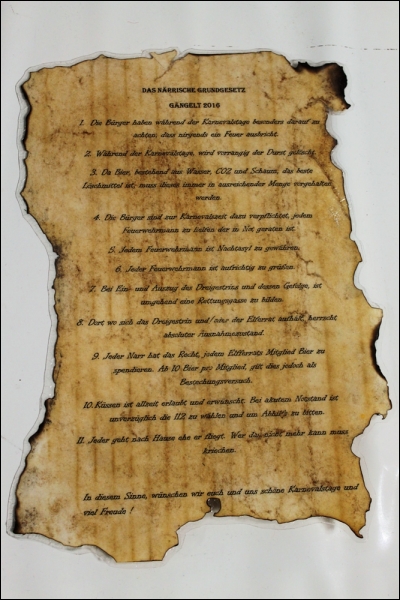 DAS NÄRRISCHE GRUNDGESETZ
GANGELT 2016
1. Die Bürger haben während der Karnevalstage besonders darauf zu
achten, dass nirgends ein Feuer ausbricht.
2. Während der Karnevalstage, wird vorrangig der Durst gelöscht.
3. Da Bier, bestehend aus Wasser, CO2 und Schaum, das beste
Löschmittel ist, muss dieses immer in ausreichender Menge vorgehalten
werden.
4. Die Bürger sind zur Karnevalszeit dazu verpflichtet, jedem
Feuerwehrmann zu helfen der in Not geraten ist.
5. Jedem Feuerwehrmann ist Nachtasyl zu gewähren.
6. Jeder Feuerwehrmann ist aufrichtig zu grüßen.
7. Bei Ein- und Auszug des Dreigestirns und dessen Gefolge, ist
umgehend eine Rettungsgasse zu bilden.
8. Dort wo sich das Dreigestirn und/oder der Elferrat aufhält, herrscht
absoluter Ausnahmezustand.
9. Jeder Narr hat das Recht, jedem Elferrats Mitglied Bier zu
spendieren. Ab 10 Bier pro Mitglied, gilt dies jedoch als
Bestechungsversuch.
10. Küssen ist allzeit erlaubt und erwünscht. Bei akutem Notstand ist
unverzüglich die 112 zu wählen und um Abhilfe zu bitten.
11. Jeder geht nach Hause ehe er fliegt. Wer das nicht mehr kann muss
kriechen.
In diesem Sinne, wünschen wir euch und uns schöne Karnevalstage und
viel Freude !